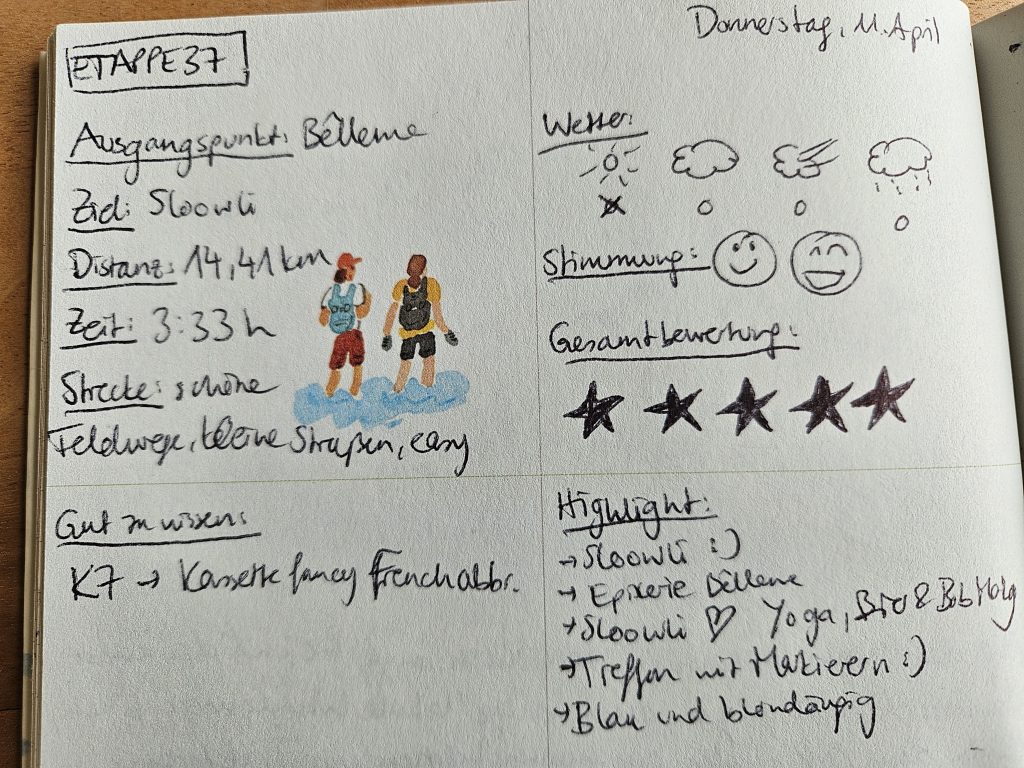 ETAPPE 37
Ausgangspunkt: Bêlleme
Ziel: Sloowli
Distanz: 14,41 km
Zeit: 3:33 h
Strecke: schöne
Feldwege, kleine Straßen, easy
Donnerstag, 11. April
Wetter:
Stimmung:
Gesamtbewertung:
Gut zu wissen:
K7 → Kassette fancy French abbr.
Highlight:
→ Sloowli :)
→ Epicerie Bêlleme
→ Sloowli ♡ Yoga, &
→ Treffen mit :)
→ Blau und blondäugig